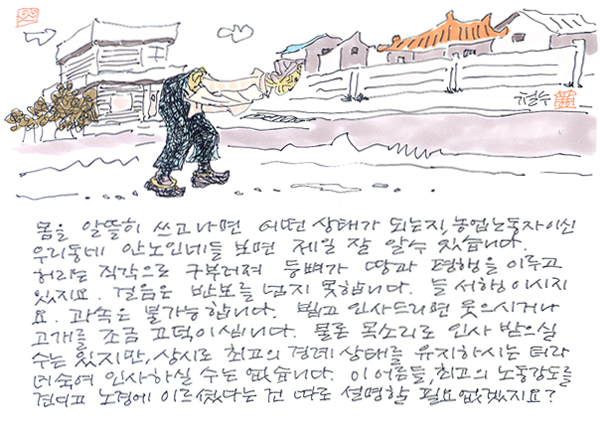 철수
몸을 알뜰히 쓰고나면 어떤 상태가 되는지, 농업노동자이신
우리동네 안노인네들 보면 제일 잘 알수 있습니다.
허리는 직각으로 구부러져 등뼈가 땅과 평행을 이루고
있지요. 걸음은 반보를 넘지 못합니다. 늘 서행이시지
요. 과속은 불가능합니다. 뵙고 인사드리면 웃으시거나
고개를 조금 끄덕이십니다. 물론 목소리로 인사 받으실
수는 있지만, 상시로 최고의 경례 상태를 유지하시는 터라
더 숙여 인사하실 수는 없습니다. 이 어른들, 최고의 노동강도를
견디고 노경에 이르셨다는 건 따로 설명할 필요 없겠지요?